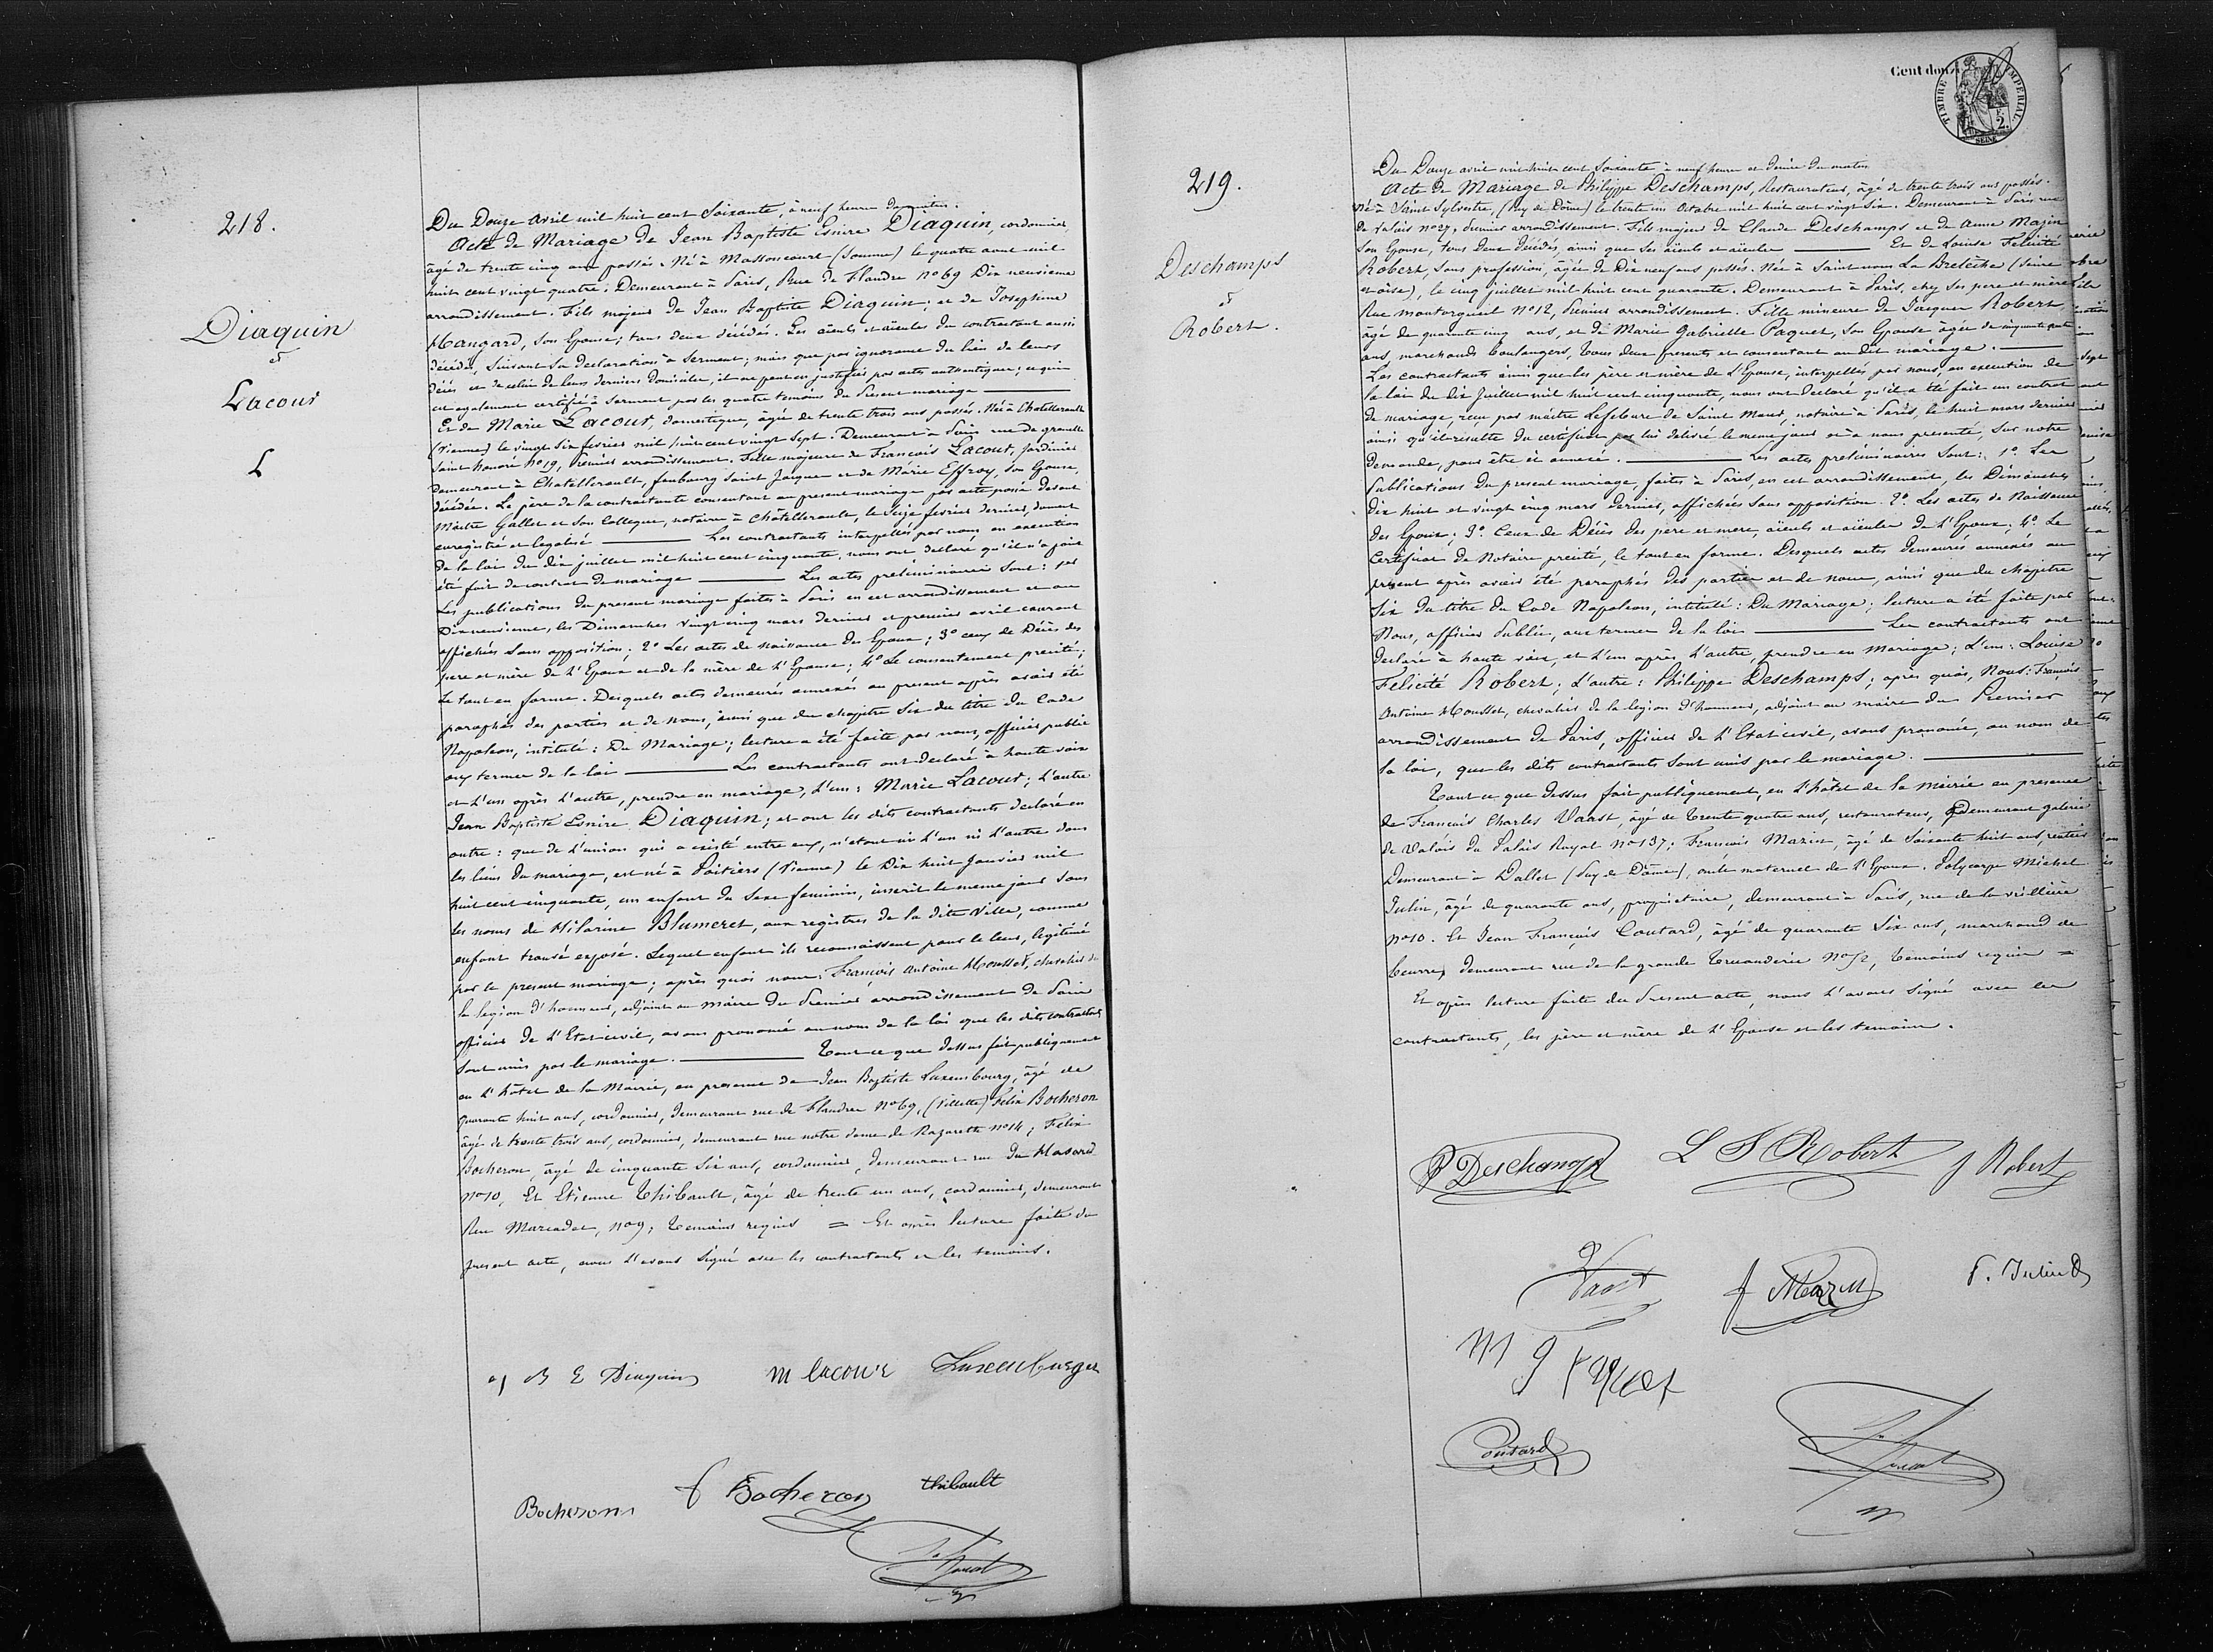 218.
Diaquin
&
Lacour
L
Du Douze Avril mil huit cent Soixante, à neuf heures du matin.
Acte de Mariage de Jean Baptiste Esnire Diaquin, cordonnier,
âgé de trente cinq ans passés. Né à Massoncourt (Somme) le quatre aout mil
huit cent vingt quatre. Demeurant à Paris, Rue de Flandre no 69 Dix neuvieme
arrondissement. Fils majeur de Jean Baptiste Diaquin; et de Josephine
Hangard, son Epouse; tous deux décédés. Les aïeuls et aïeules du contractant aussi
décédés, Suivant sa declaration à Serment; mais que par ignorance du lieu de leurs
décès et de celui de leurs derniers domiciles, il ne peut en justifier par actes authentiques; ce qui
est egalement certifié à serment par les quatre temoins du Présent mariage
Et de Marie Lacour, domestique, âgée de trente trois ans passés. Née à Chatellerault
(Vienne) le vingt Six fevrier mil huit cent vingt Sept. Demeurant à Paris rue de grenelle
Saint honoré no 19, Premier arrondissement. Fille majeure de Francois Lacour, jardinier
demeurant à Chatellerault, faubourg Saint Jacques et de Marie Effroy, Son Epouse,
décédée. Le père de la contractante consentant au present mariage par acte passé devant
Maitre Gallet et Son Collegue, notaire à Châtellerault, le Seize fevrier dernier, dument
enregistré et legalisé Les contractants interpellés par nous, en execution
de la loi du dix juillet mil huit cent cinquante, nous ont declaré qu'il n'a point
été fait de contrat de mariage Les actes préliminaires Sont: 1o
Les publications du present mariage faites à Paris en cet arrondissement et au
Dix neuvieme, les Dimanches vingt cinq mars dernier et premier avril courant
affichées Sans opposition; 2o Les actes de naissance des Epoux; 3o ceux de Décès des
pere et mère de l'Epoux et de la mère de l'Epouse; 4o Le consentement precité;
le tout en forme. Desquels actes demeurés annexés au present après avoir été
paraphés des parties et de nous, ainsi que du chapitre Six du titre du Code
Napoleon, intitulé: Du Mariage; lecture a été faite par nous, officier public
aux termes de la loi Les contractants ont declaré à haute voix
et l'un après l'autre, prendre en mariage, l'un: Marie Lacour; l'autre
Jean Baptiste Esnire Diaquin; et ont les dits contractants declaré en
outre: que de l'union qui a existé entre eux, n'etant ni l'un ni l'autre dans
les liens du mariage, est né à Poitiers (Vienne) le Dix huit Janvier mil
huit cent cinquante, un enfant du Sexe feminin, inscrit le meme jour Sous
les noms de Hilarine Blumeret, aux registres de la dite Ville, comme
enfant trouvé exposé. Lequel enfant ils reconnaissent pour le leur, legitimé
par le present mariage; après quoi nous: François Antoine Housset, chevalier de
la legion d'honneur, adjoint au Maire du Premier arrondissement de Paris
officier de l'Etat-civil, avons prononcé au nom de la loi que les dits contractants
Sont unis par le mariage. Tout ce que dessus fait publiquement
en l'hôtel de la Mairie, en presence de Jean Baptiste Luxembourg, âgé de
quarante huit ans, cordonnier, demeurant rue de Flandre no 69, (Villette) Felix Bocheron
âgé de trente trois ans, cordonnier, demeurant rue notre dame de Nazareth no 14; Felix
Bocheron, âgé de cinquante Six ans, cordonnier, demeurant rue du Hasard
no 10, Et Etienne Thibault, âgé de trente un ans, cordonnier, demeurant
Rue Marcadet, no 9; temoins requis = Et après lecture faite du
present acte, nous l'avons Signé avec les contractants et les temoins.
J B E Diaquin m lacour Luxenburger
Bocheron f Bocheron thibault
Cent douze
TIMBRE IMPERIAL
2.
SEINE
219.
Deschamps
&
Robert.
Du Douze avril mil huit cent Soixante à neuf heures et demie du matin
Acte de Mariage de Philippe Deschamps, Restaurateur, âgé de trente trois ans passés.
Né à Saint Sylvestre, (Puy de Dôme) le trente un Octobre mil huit cent vingt Six. Demeurant à Paris rue
no 27, Premier arrondissement. Fils majeur de Claude Deschamps et de Anne Mazin
Son Epouse, tous deux décédés, ainsi que Ses aïeuls et aïeules Et de Louise Felicité
Robert, Sans profession, âgée de Dix neuf ans passés. Née à Saint-nom La Bretèche (Seine
et oise), le cinq juillet mil huit cent quarante. Demeurant à Paris, chez Ses père et mère
Rue montorgueil no 12, Premier arrondissement. Fille mineure de Jacques Robert,
âgé de quarante cinq ans, et de Marie Gabrielle Paquet, Son Epouse âgée de cinquante quatre
ans, marchands boulangers, tous deux presents et consentant au dit mariage.
Les contractants ainsi que les père et mère de l'Epouse, interpellés par nous, en execution de
la loi du dix juillet mil huit cent cinquante, nous ont declaré qu'il a été fait un contrat
de mariage, reçu par maitre Lefebure de Saint Maur, notaire à Paris, le huit mars dernier
ainsi qu'il resulte du certificat par lui delivré le meme jour et à nous presenté, Sur notre
demande, pour être ci annexé. Les actes préliminaires Sont: 1o Les
Publications du present mariage, faites à Paris, en cet arrondissement, les Dimanches
dix huit et vingt cinq mars dernier, affichées Sans opposition. 2o Les actes de Naissance
des Epoux; 3o Ceux de Décès des pere et mere, aïeuls et aïeules de l'Epoux; 4o Le
Certificat de Notaire precité, le tout en forme. Desquels actes demeurés annexés au
present après avoir été paraphés des parties et de nous, ainsi que du chapitre
Six du titre du Code Napoleon, intitulé: Du Mariage; lecture a été faite par
Nous, officier Public, aux termes de la loi Les contractants ont
declaré à haute voix, et l'un après l'autre, prendre en mariage; L'un: Louise
Felicité Robert; L'autre: Philippe Deschamps; après quoi, Nous: Francois
Antoine Housset, chevalier de la legion d'honneur, adjoint au maire du Premier
arrondissement de Paris, officier de l'Etat civil, avons prononcé, au nom de
la loi, que les dits contractants Sont unis par le mariage.
Tout ce que dessus fait publiquement, en l'hôtel de la Mairie en presence
de Francois Charles Vaast, âgé de trente quatre ans, restaurateur, demeurant galerie
de Valois du Palais Royal no 137; Francois Mazin, âgé de Soixante huit ans, rentier
Demeurant à Dallet (Puy de Dôme), oncle maternel de l'Epoux. Polycarpe Michel
Julin, âgé de quarante ans, propriétaire, demeurant à Paris, rue de la vrillière
no 10. Et Jean François Coutard, âgé de quarante Six ans, marchand de
beurre, demeurant rue de la grande truanderie no 52, temoins requis =
Et après lecture faite du Present acte, nous l'avons Signé avec les
contractants, les père et mère de l'Epouse et les temoins.
P Deschamps L F Robert J Robert
Vaast f Mazin P. Julin
M g Paquet
Coutard